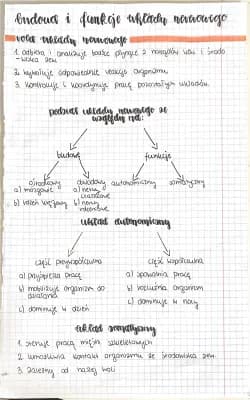 budowa i funkcje układu nerwowego
rola układu nerwowego
1. odbiera i analizuje bodźce płynące z narządów wew. i środo
-wiska zew.
2. wykonuje odpowiednie reakcje organizmu
3. kontroluje i koordynuje pracę pozostałych układów.
podział układu nerwowego ze
względu na:
budowę funkcje
ośrodkowy obwodowy autonomiczny somatyczny
a) mózgowie a) nerwy
czaszkowe
b) rdzeń kręgowy b) nerwy
rdzeniowe
układ autonomiczny
część przywspółczulna część współczulna
a) przyspiesza pracę a) spowalnia pracę
b) mobilizuje organizm do b) rozluźnia organizm
działania
c) dominuje w dzień c) dominuje w nocy
układ somatyczny
1. steruje pracą mięśni szkieletowych
2. umożliwia kontakt organizmu ze środowiska zew.
3. zależny od naszej woli